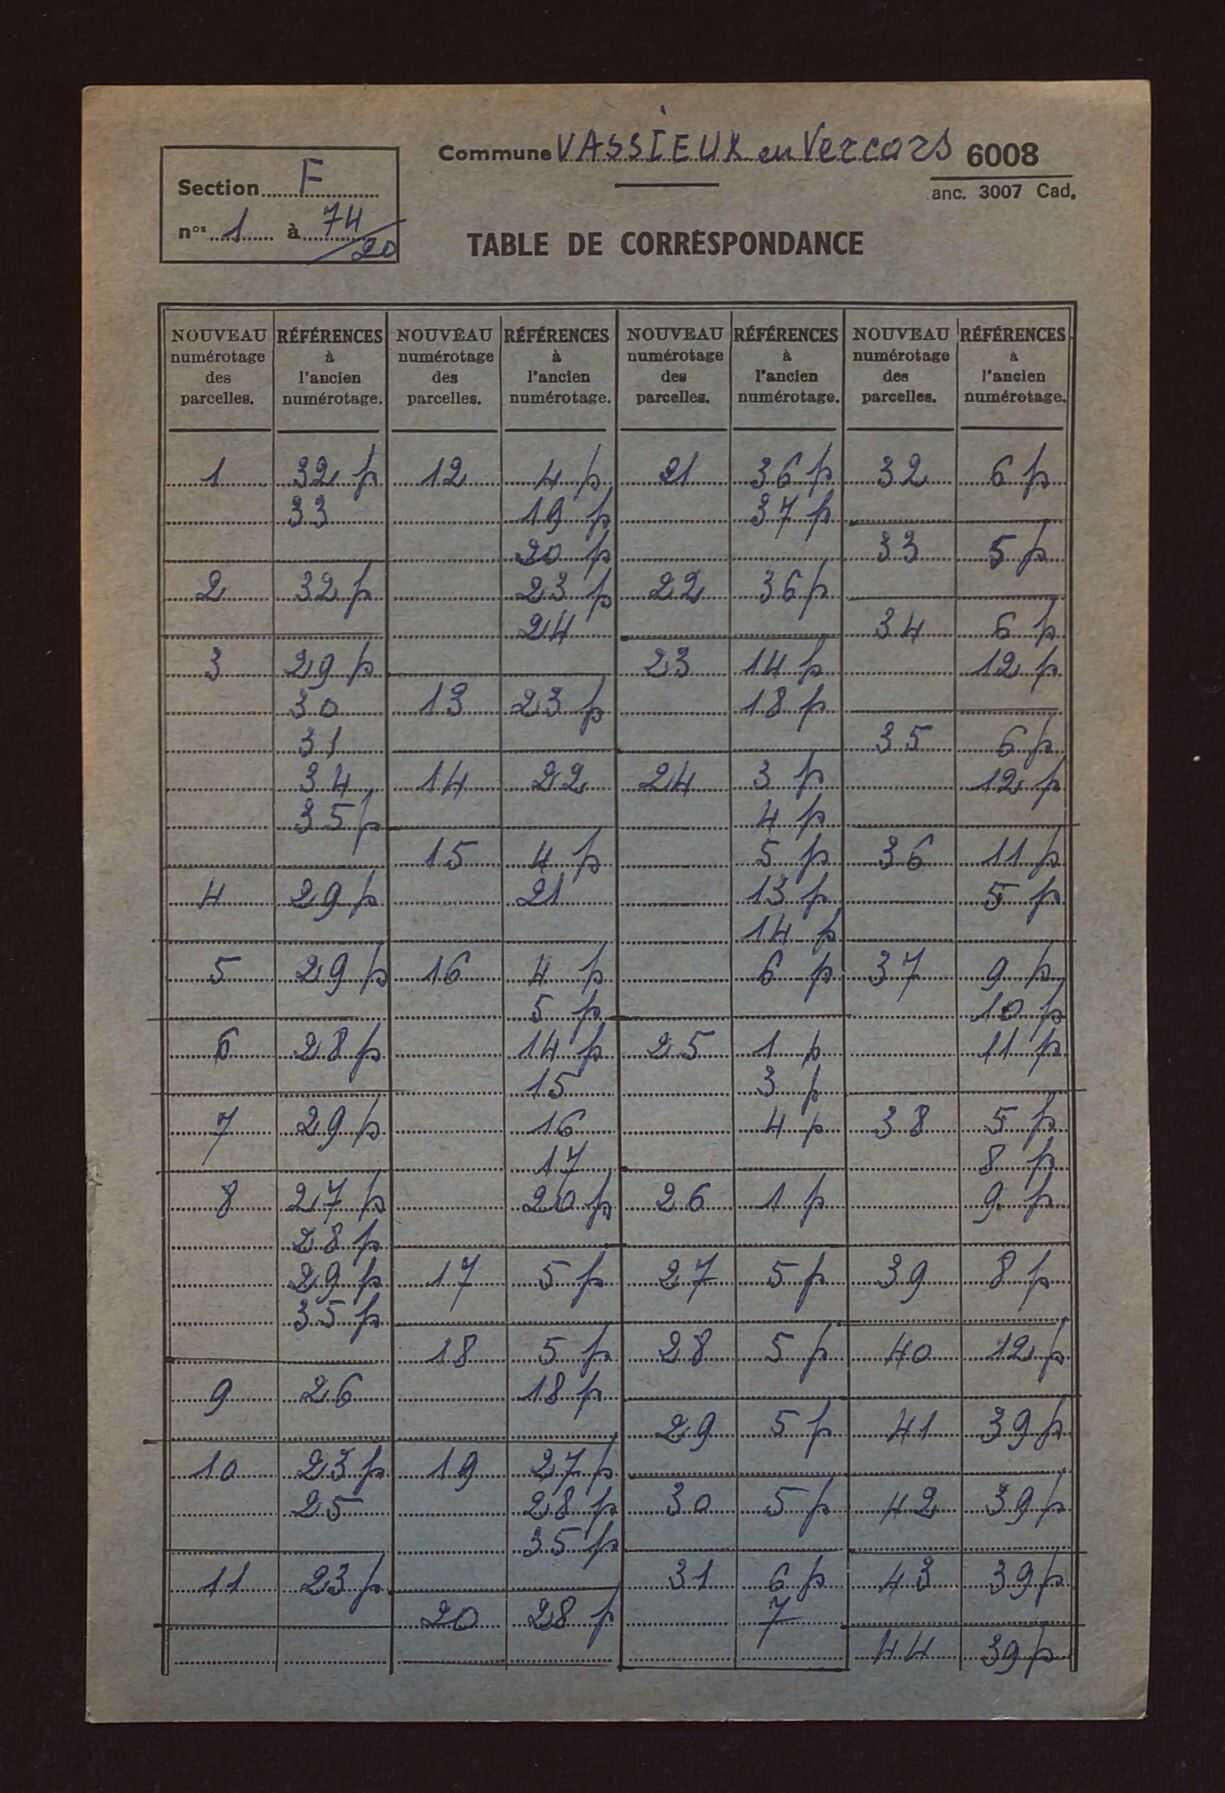 Commune VASSIEUX en Vercors 6008
anc. 3007 Cad.
Section F
nos 1 à 74/20
TABLE DE CORRESPONDANCE
NOUVEAU RÉFÉRENCES NOUVEAU RÉFÉRENCES NOUVEAU RÉFÉRENCES NOUVEAU RÉFÉRENCES
numérotage à numérotage à numérotage à numérotage à
des l'ancien des l'ancien des l'ancien des l'ancien
parcelles. numérotage. parcelles. numérotage. parcelles. numérotage. parcelles. numérotage.
1 32 p 12 4 p 21 36 p 32 6 p
33 19 p 37 p
20 p 33 5 p
2 32 p 23 p 22 36 p
24 34 6 p
3 29 p 23 14 p 12 p
30 13 23 p 18 p
31 35 6 p
34 14 22 24 3 p 12 p
35 p 4 p
15 4 p 5 p 36 11 p
4 29 p 21 13 p 5 p
14 p
5 29 p 16 4 p 6 p 37 9 p
5 p 10 p
6 28 p 14 p 25 1 p 11 p
15 3 p
7 29 p 16 4 p 38 5 p
17 8 p
8 27 p 20 p 26 1 p 9 p
28 p
29 p 17 5 p 27 5 p 39 8 p
35 p
18 5 p 28 5 p 40 12 p
9 26 18 p
29 5 p 41 39 p
10 23 p 19 27 p
25 28 p 30 5 p 42 39 p
35 p
11 23 p 31 6 p 43 39 p
20 28 p 7
44 39 p